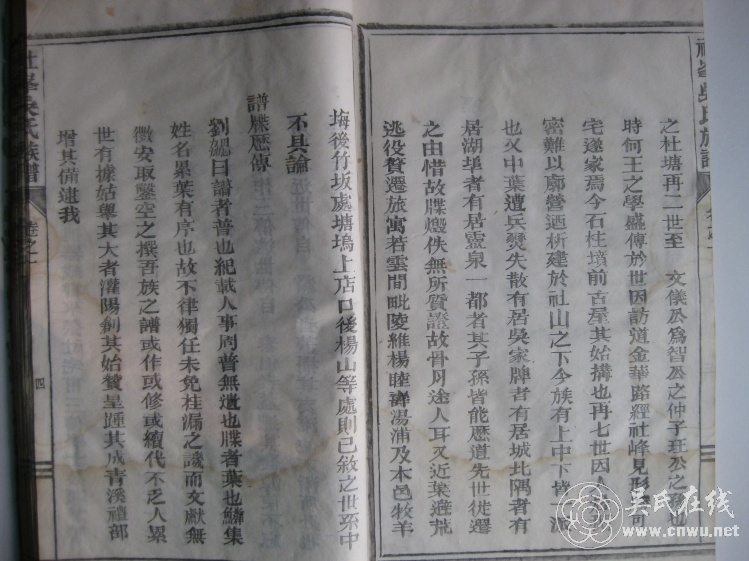 之杜塘再二世至 文儀公爲智公之仲子玨公之孫也
時何王之學盛傳於世因訪道金華路經社峰見形勝可
宅遂家焉今石柱墳前古屋其始搆也再七世因人
密難以廓營迺析建於社山之下今族有上中下皆派
也又中葉遭兵燹失散有居吳家牌者有居城北隅者有
居湖埠者有居靈泉一都者其子孫皆能歷道先世徙遷
之由惜故牒燬佚無所質證故骨肉途人耳又近葉避荒
逃役贅遷旅寓若雲間毗陵維楊睦湯浦及本邑牧羊
塢後竹坂處塘塢上店口後楊山等處則已敘之世系中
不具論
譜牒歷傳
劉勰曰譜者普也紀載人事周普無遺也牒者葉也鱗集
姓名累葉有序也故不律獨任未免挂漏之譏而文獻無
徵安取鑿空之撰吾族之譜或作或修或續代不乏人累
世有據姑舉其大者灌陽創其始贊皇踵其成青溪禮部
增其備逮我
社峯吳氏族譜 卷之一 四
吳氏在线
www.cnwu.net